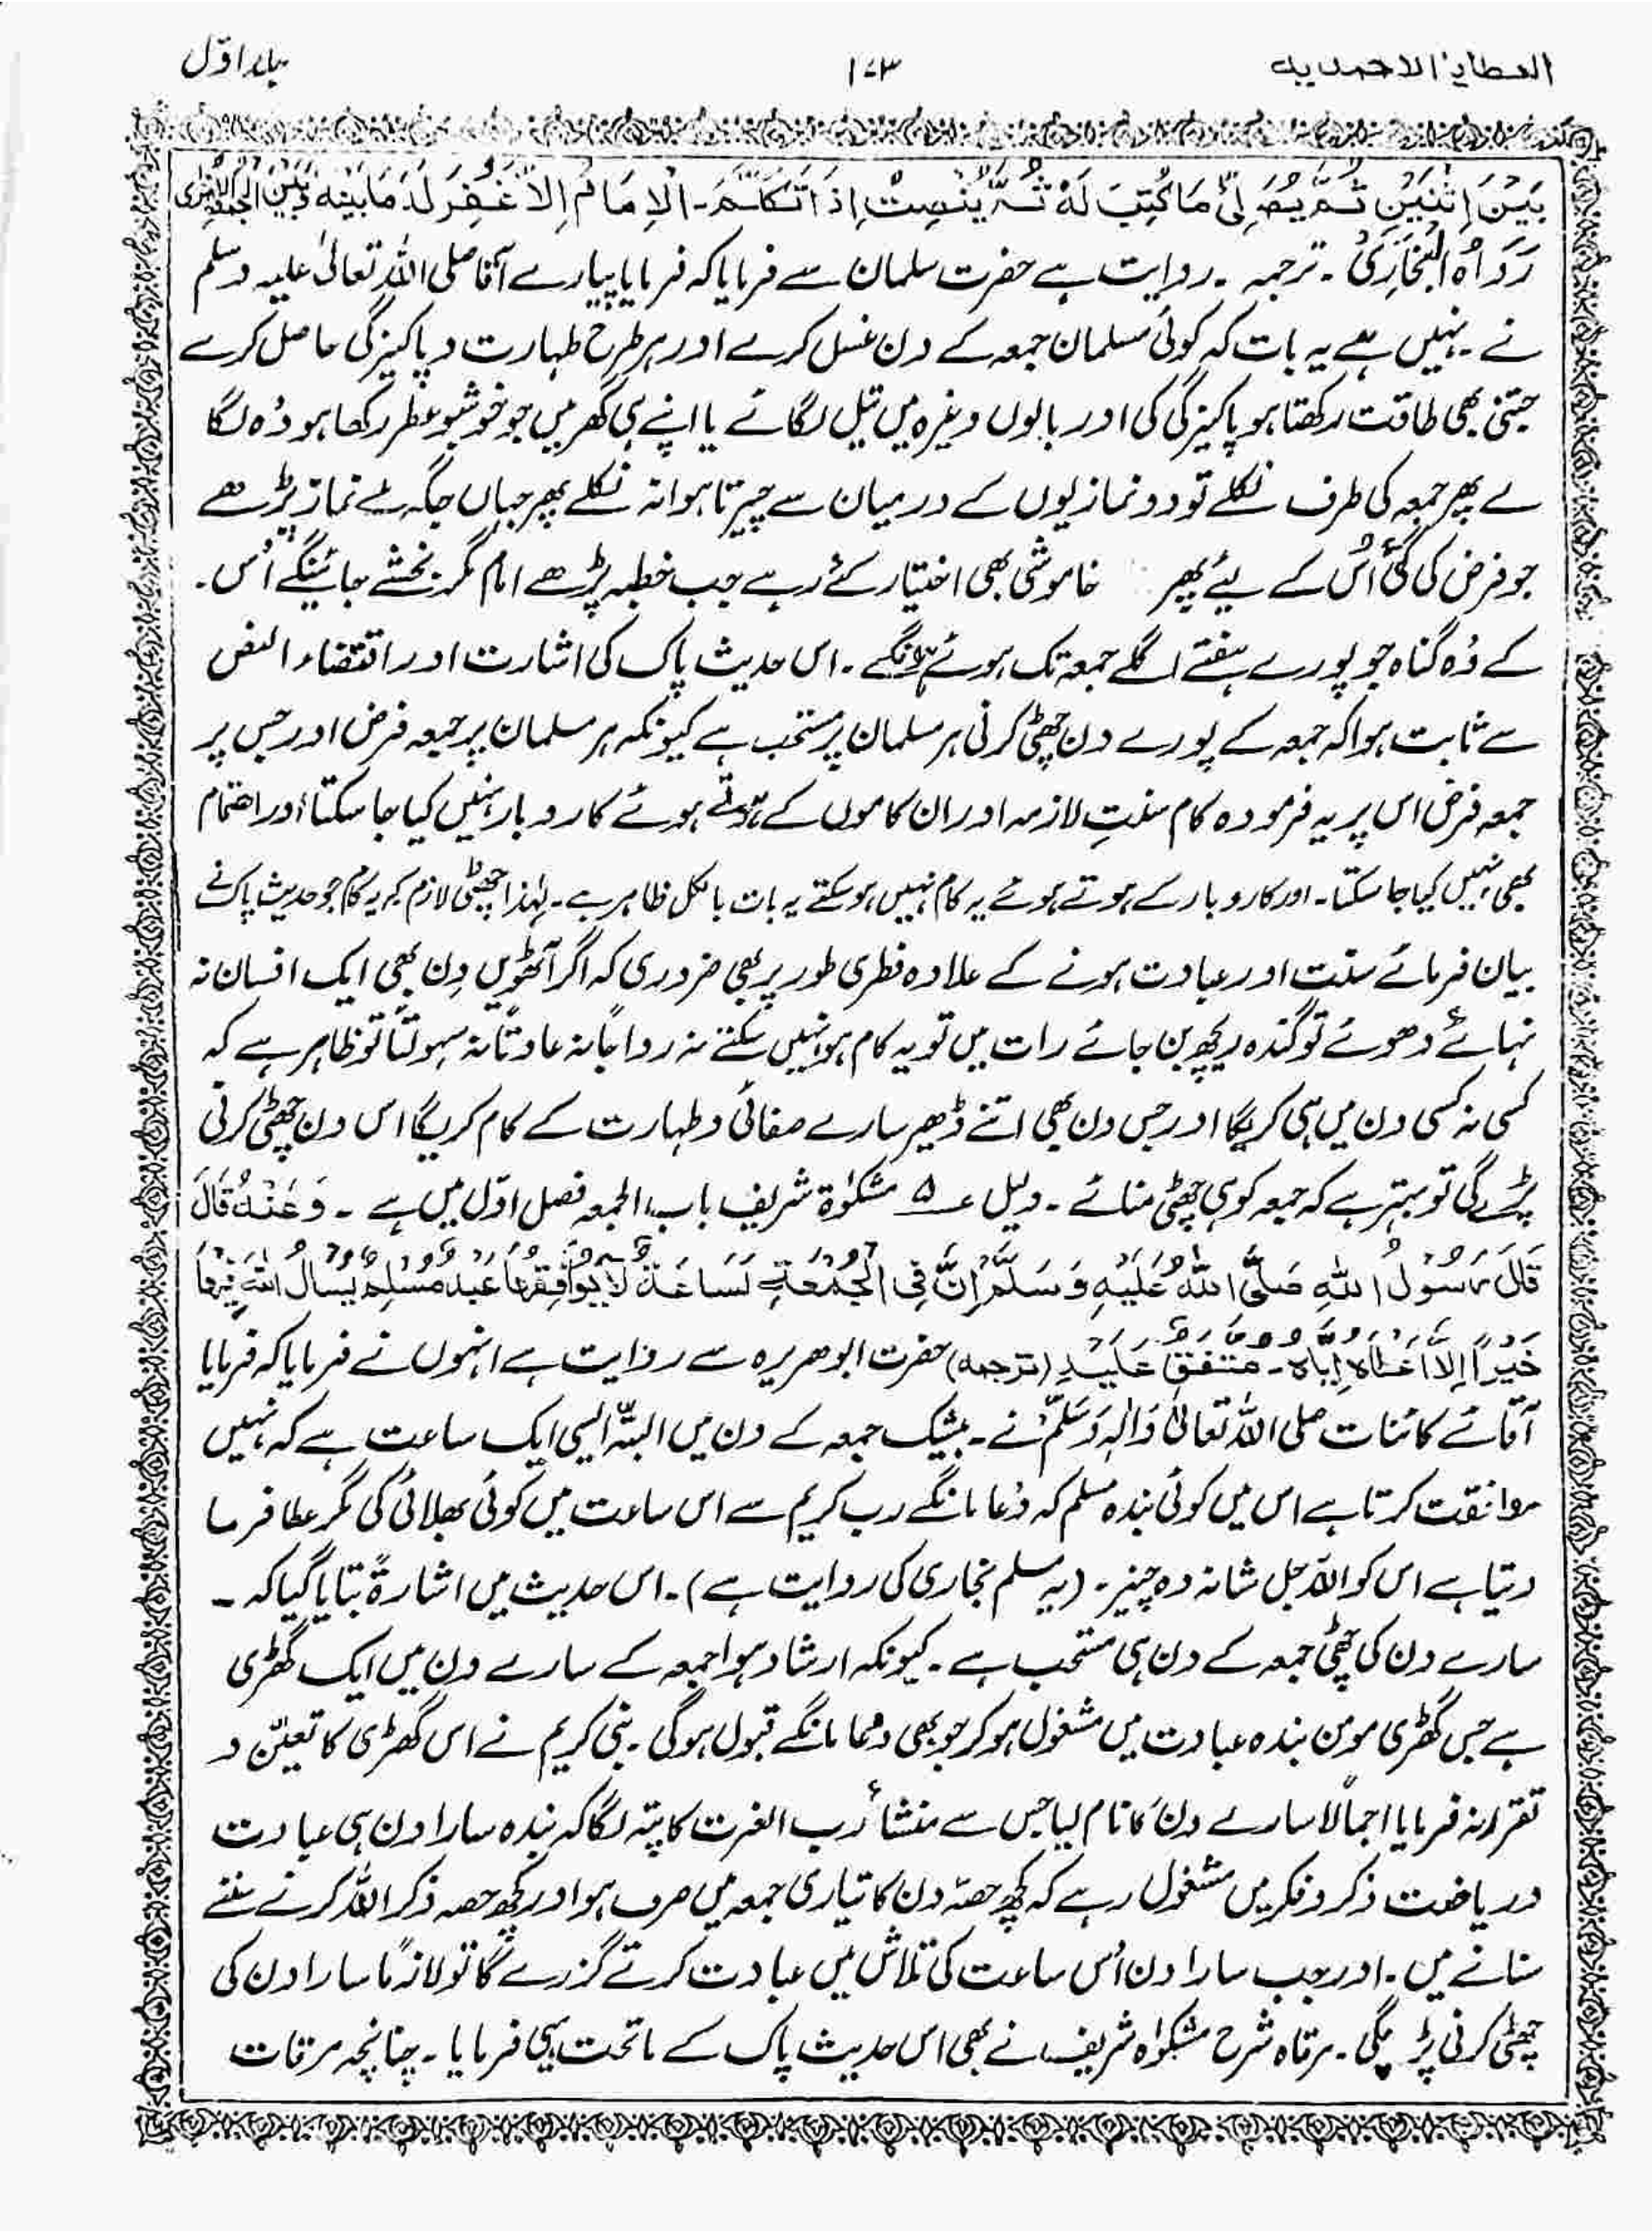 العطایا الاحمدیہ ۱۷۳ جلد اوّل
بَیْنَ اِثْنَیْنِ ثُمَّ یُصَلِّیْ مَا کُتِبَ لَہٗ ثُمَّ یُنْصِتُ اِذَا تَکَلَّمَ۔ الْاِمَامُ اِلَّا غُفِرَ لَہٗ مَا بَیْنَہٗ وَبَیْنَ الْجُمُعَۃِ الْاُخْرٰی
رَوَاہُ الْبُخَارِیُّ۔ ترجمہ۔ روایت ہے حضرت سلمان سے فرمایا کہ فرمایا پیارے آقا صلی اللہ تعالیٰ علیہ وسلم
نے۔ نہیں ہے یہ بات کہ کوئی مسلمان جمعہ کے دن غسل کرے اور ہر طرح طہارت و پاکیزگی حاصل کرے
جتنی بھی طاقت رکھتا ہو پاکیزگی کی اور بالوں وغیرہ میں تیل لگائے یا اپنے ہی گھر میں جو خوشبو عطر رکھا ہو وُہ لگا
لے پھر جمعہ کی طرف نکلے تو دو نمازیوں کے درمیان سے چیرتا ہوا نہ نکلے پھر جہاں جگہ ملے نماز پڑھے
جو فرض کی گئی اُس کے لیئے پھر خاموشی بھی اختیار کئے رہے جب خطبہ پڑھے امام مگر بخشے جائینگے اُس۔
کے وُہ گناہ جو پورے ہفتے اگلے جمعہ تک ہوئے ہونگے۔ اس حدیث پاک کی اشارت اور اقتضاء النص
سے ثابت ہوا کہ جمعہ کے پورے دن چھٹی کرنی ہر مسلمان پر مستحب ہے کیونکہ ہر مسلمان پر جمعہ فرض اور جس پر
جمعہ فرض اس پر یہ فرمودہ کام سنتِ لازمہ اور ان کاموں کے ہوتے ہوئے کاروبار نہیں کیا جا سکتا اور اھتمام
بھی نہیں کیا جا سکتا۔ اور کاروبار کے ہوتے ہوئے یہ کام نہیں ہو سکتے یہ بات بالکل ظاہر ہے۔ لہٰذا چھٹی لازم کہ یہ کام جو حدیث پاک نے
بیان فرمائے سنت اور عبادت ہونے کے علاوہ فطری طور پر بھی ضروری کہ اگر آٹھویں دِن بھی ایک انسان نہ
نہائے دھوئے تو گندہ ریچھ بن جائے رات میں تو یہ کام ہو نہیں سکتے نہ رواجًا نہ عادتًا نہ سہولتًا تو ظاہر ہے کہ
کسی نہ کسی دن میں ہی کریگا اور جس دن بھی اتنے ڈھیر سارے صفائی و طہارت کے کام کریگا اس دن چھٹی کرنی
پڑے گی تو بہتر ہے کہ جمعہ کو ہی چھٹی منائے۔ دلیل ع۵ مشکوٰۃ شریف باب الجمعہ فصل اوّل میں ہے۔ وَعَنْہُ قَالَ
قَالَ رَسُوْلُ اللّٰہِ صَلَّی اللّٰہُ عَلَیْہِ وَسَلَّمَ اِنَّ فِی الْجُمُعَۃِ لَسَاعَۃً لَا یُوَافِقُھَا عَبْدٌ مُّسْلِمٌ یَّسْأَلُ اللّٰہَ فِیْھَا
خَیْرًا اِلَّا اَعْطَاہُ اِیَّاہُ۔ مُتَّفَقٌ عَلَیْہِ (ترجمہ) حضرت ابوھریرہ سے روایت ہے انہوں نے فرمایا کہ فرمایا
آقائے کائنات صلی اللہ تعالیٰ وَاٰلِہٖ وَسَلَّمَ نے۔ بیشک جمعہ کے دن میں البتہّ ایسی ایک ساعت ہے کہ نہیں
موافقت کرتا ہے اس میں کوئی بندہ مسلم کہ دُعا مانگے رب کریم سے اس ساعت میں کوئی بھلائی کی مگر عطا فرما
دیتا ہے اس کو اللہ جل شانہ وہ چیز۔ (یہ مسلم بخاری کی روایت ہے)۔ اس حدیث میں اشارۃً بتایا گیا کہ۔
سارے دن کی چھٹی جمعہ کے دن ہی مستحب ہے۔ کیونکہ ارشاد ہوا جمعہ کے سارے دن میں ایک گھڑی
ہے جس گھڑی مومن بندہ عبادت میں مشغول ہو کر جو بھی دعا مانگے قبول ہوگی۔ نبی کریم نے اس گھڑی کا تعیّن و
تقرر نہ فرمایا اجمالًا سارے دن کا نام لیا جس سے منشاءِ رب العزت کا پتہ لگا کہ بندہ سارا دن ہی عبادت
و ریاضت ذکر و فکر میں مشغول رہے کہ کچھ حصّہ دن کا تیاری جمعہ میں صرف ہو اور کچھ حصہ ذکر اللہ کرنے سننے
سنانے میں۔ اور جب سارا دن اُس ساعت کی تلاش میں عبادت کرتے گزرے گا تو لازمًا سارا دن کی
چھٹی کرنی پڑیگی۔ مرقاہ شرح مشکوٰہ شریف نے بھی اس حدیث پاک کے ماتحت یہی فرمایا۔ چنانچہ مرقات